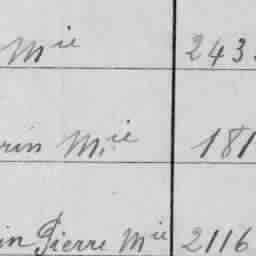 Mie 243
rin Mie 181
in Pierre Mie 2116